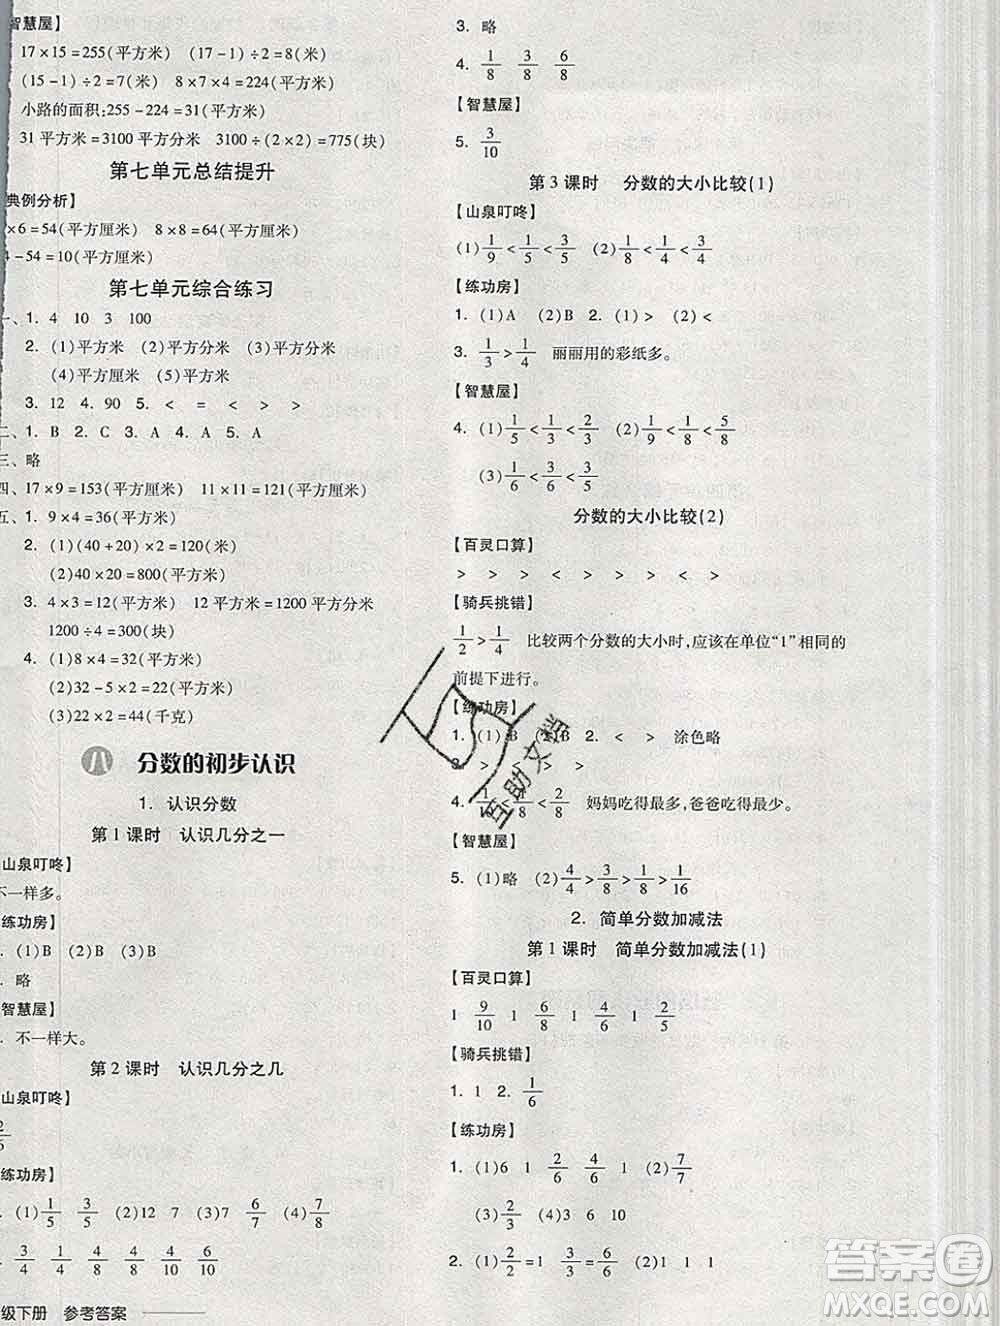 智慧屋】
17×15=255(平方米) (17-1)÷2=8(米)
(15-1)÷2=7(米) 8×7×4=224(平方米)
小路的面积:255-224=31(平方米)
31平方米=3100平方分米 3100÷(2×2)=775(块)
第七单元总结提升
典例分析】
×6=54(平方米) 8×8=64(平方米)
4-54=10(平方米)
第七单元综合练习
一、1. 4 10 3 100
2. (1)平方米 (2)平方分米 (3)平方分米
(4)平方厘米 (5)平方米
3. 12 4. 90 5. < = < > >
二、1. B 2. C 3. A 4. A 5. A
三、略
四、17×9=153(平方厘米) 11×11=121(平方厘米)
五、1. 9×4=36(平方厘米)
2. (1)(40+20)×2=120(米)
(2)40×20=800(平方米)
3. 4×3=12(平方米) 12平方米=1200平方分米
1200÷4=300(块)
4. (1)8×4=32(平方米)
(2)32-5×2=22(平方米)
(3)22×2=44(千克)
八 分数的初步认识
1. 认识分数
第1课时 认识几分之一
山泉叮咚】
不一样多。
练功房】
. (1)B (2)B (3)B
. 略
智慧屋】
. 不一样大。
第2课时 认识几分之几
山泉叮咚】
2/6
练功房】
. (1)1/5 3/5 (2)12 7 (3)6/7 (4)7/8
. 3/4 1/4 4/8 4/8 2/4 2/4
级下册 参考答案
3. 略
4. 1/8 3/8 6/8
【智慧屋】
5. 3/10
第3课时 分数的大小比较(1)
【山泉叮咚】
(1)1/9<1/5<1/3 (2)1/8<1/4<3/4
【练功房】
1. (1)A (2)B 2. (1)> (2)<
3. 1/3>1/4 丽丽用的彩纸多。
【智慧屋】
4. (1)1/5<1/3<2/3 (2)1/9<1/8<5/8
(3)1/6<3/6<3/4
分数的大小比较(2)
【百灵口算】
> > > < > > > > < >
【骑兵挑错】
1/2>1/4 比较两个分数的大小时,应该在单位“1”相同的
前提下进行。
【练功房】
1. (1)B (2)B 2. < > 涂色略
3. > < < > >
4. 1/8 /8<2/8 妈妈吃得最多,爸爸吃得最少。
【智慧屋】
5. (1)略 (2)4/4>3/8>1/8>1/16
2. 简单分数加减法
第1课时 简单分数加减法(1)
【百灵口算】
1 9/10 1 6/8 1 4/5 1 2/5
【骑兵挑错】
1. 1 2. 1/6
【练功房】
1. (1)6 1 2/6 4/6 1 (2)7/7
(3)2/3 (4)3 6 10
2. (1)2/2=1 3/6+3/6=6/6 (2)1 1 1
互助文档
答案圈
MXQE.COM